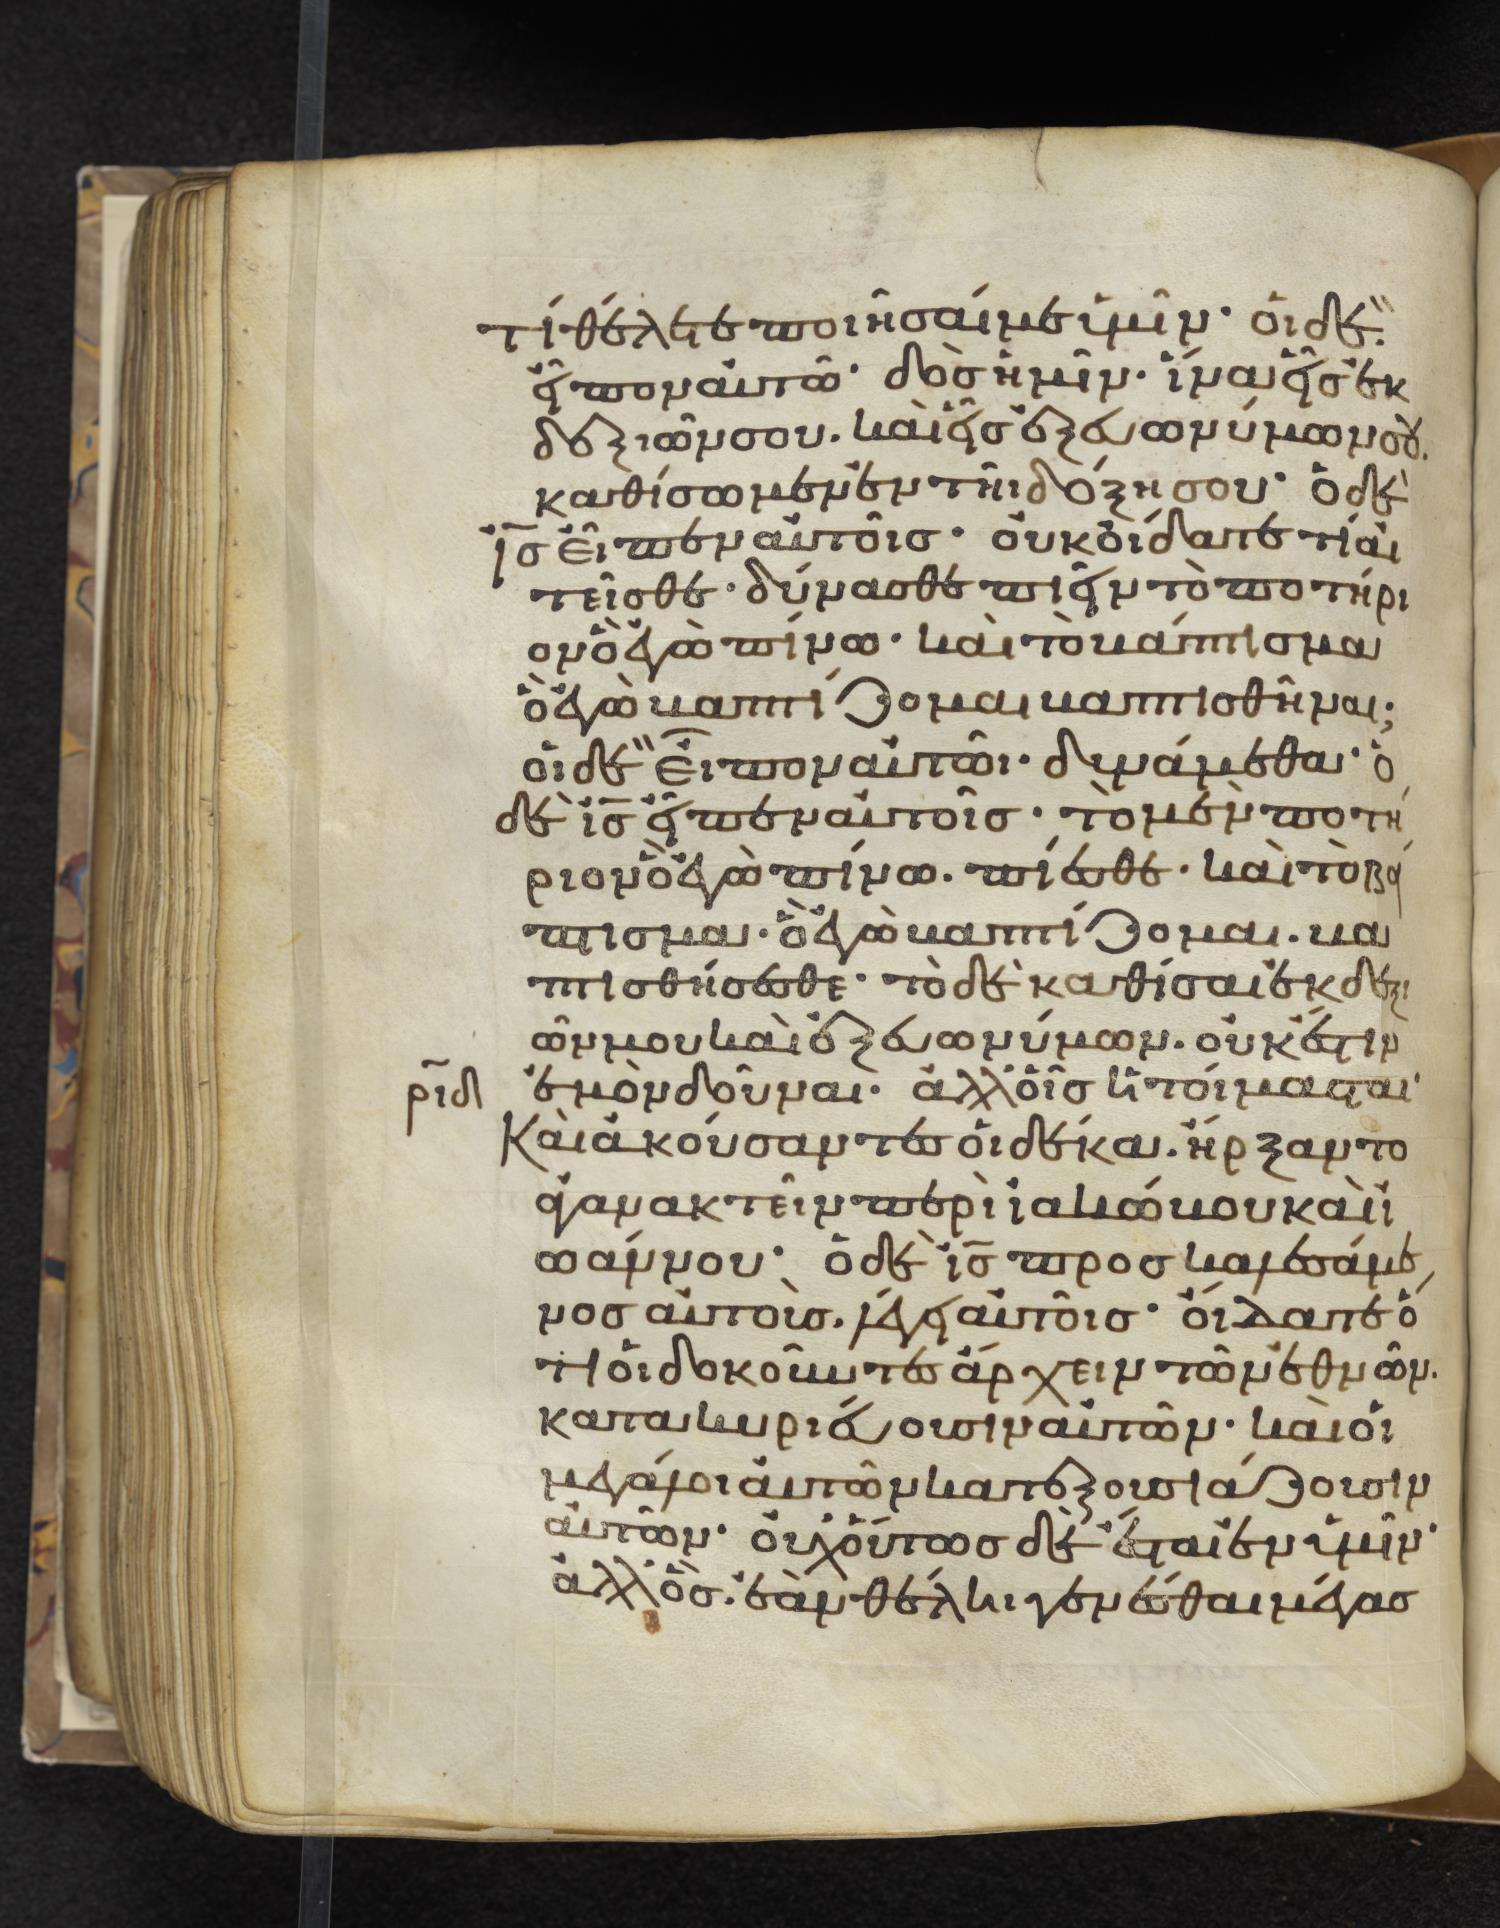 τί θέλετε ποιῆσαί με ὑμῖν· οἱ δὲ.
εἶπον αὐτῶ· δὸσ ἡμῖν· ἵνα εἷσ ἐκ
δεξιῶν σου. καὶ εἷσ ἐξ εὐωνύμων σου.
καθίσωμεν ἐν τῆι δόξη σου· ὁ δὲ
ισ εἶπεν αὐτοῖσ· οὐκ οἴδατε τί αἰ
τεῖσθε· δύνασθε πιεῖν τὸ ποτήρι
ον ὃ ἐγὼ πίνω· καὶ τὸ βάπτισμα
ὃ ἐγὼ βαπτίζομαι βαπτισθῆναι;
οἱ δὲ εἶπον αὐτῶι· δυνάμεθα· ὁ
δὲ ισ εἶπεν αὐτοῖσ· τὸ μὲν ποτή
ριον ὃ ἐγὼ πίνω. πίεσθε· καὶ τὸ βά
πτισμα· ὃ ἐγὼ βαπτίζομαι. βα
πτισθήσεσθε· τὸ δὲ καθίσαι ἐκ δεξι
ῶν μου καὶ ἐξ εὐωνύμων. οὐκ ἔστιν
ριδ ἐμὸν δοῦναι· ἀλλ' οἷσ ἡτοίμασται·
Καὶ ἀκούσαντεσ οἱ δέκα. ἤρξαντο
ἀγανακτεῖν περὶ ἰακώβου καὶ ἰ
ωάννου· ὁ δὲ ισ προσκαλεσάμε
νοσ αὐτοὺσ. λέγει αὐτοῖσ· οἴδατε ὅ
τι οἱ δοκοῦντεσ ἄρχειν τῶν ἐθνῶν.
κατακυριεύουσιν αὐτῶν· καὶ οἱ
μεγάλοι αὐτῶν κατεξουσιάζουσιν
αὐτῶν· οὐχ οὕτωσ δὲ ἔσται ἐν ὑμῖν·
ἀλλ' ὃσ. ἐὰν θέλει γενέσθαι μέγασ